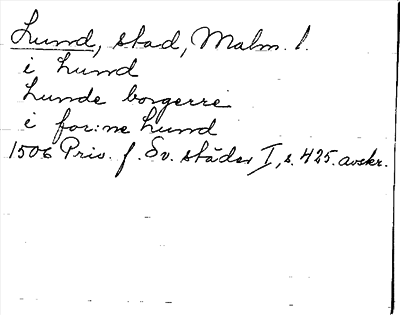 Lund, stad, Malm. l.
i Lund
Lunde borgerre
i for:ne Lund
1506 Priv. f. Sv. städer I, s. 425. avskr.